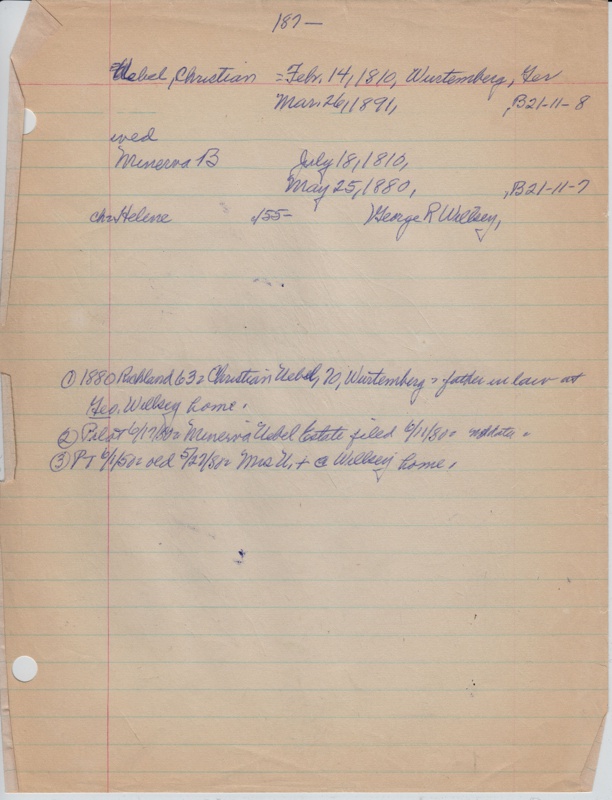 187—
Uebel, Christian = Febr. 14, 1810, Wurtemberg, Ger
Mar. 26, 1891, , B21-11-8
wed
Minerva B July 18, 1810,
May 25, 1880, , B21-11-7
ch: Helene 155— George R Willsey,
① 1880 Richland 63: Christian Uebel, 70, Wurtemberg = father in law at
Geo. Willsey home.
② Pilot 6/17/80: Minerva Uebel Estate filed 6/11/80:
③ PT 6/1/80: 5/27/80: Mrs U, + @ Willsey home.